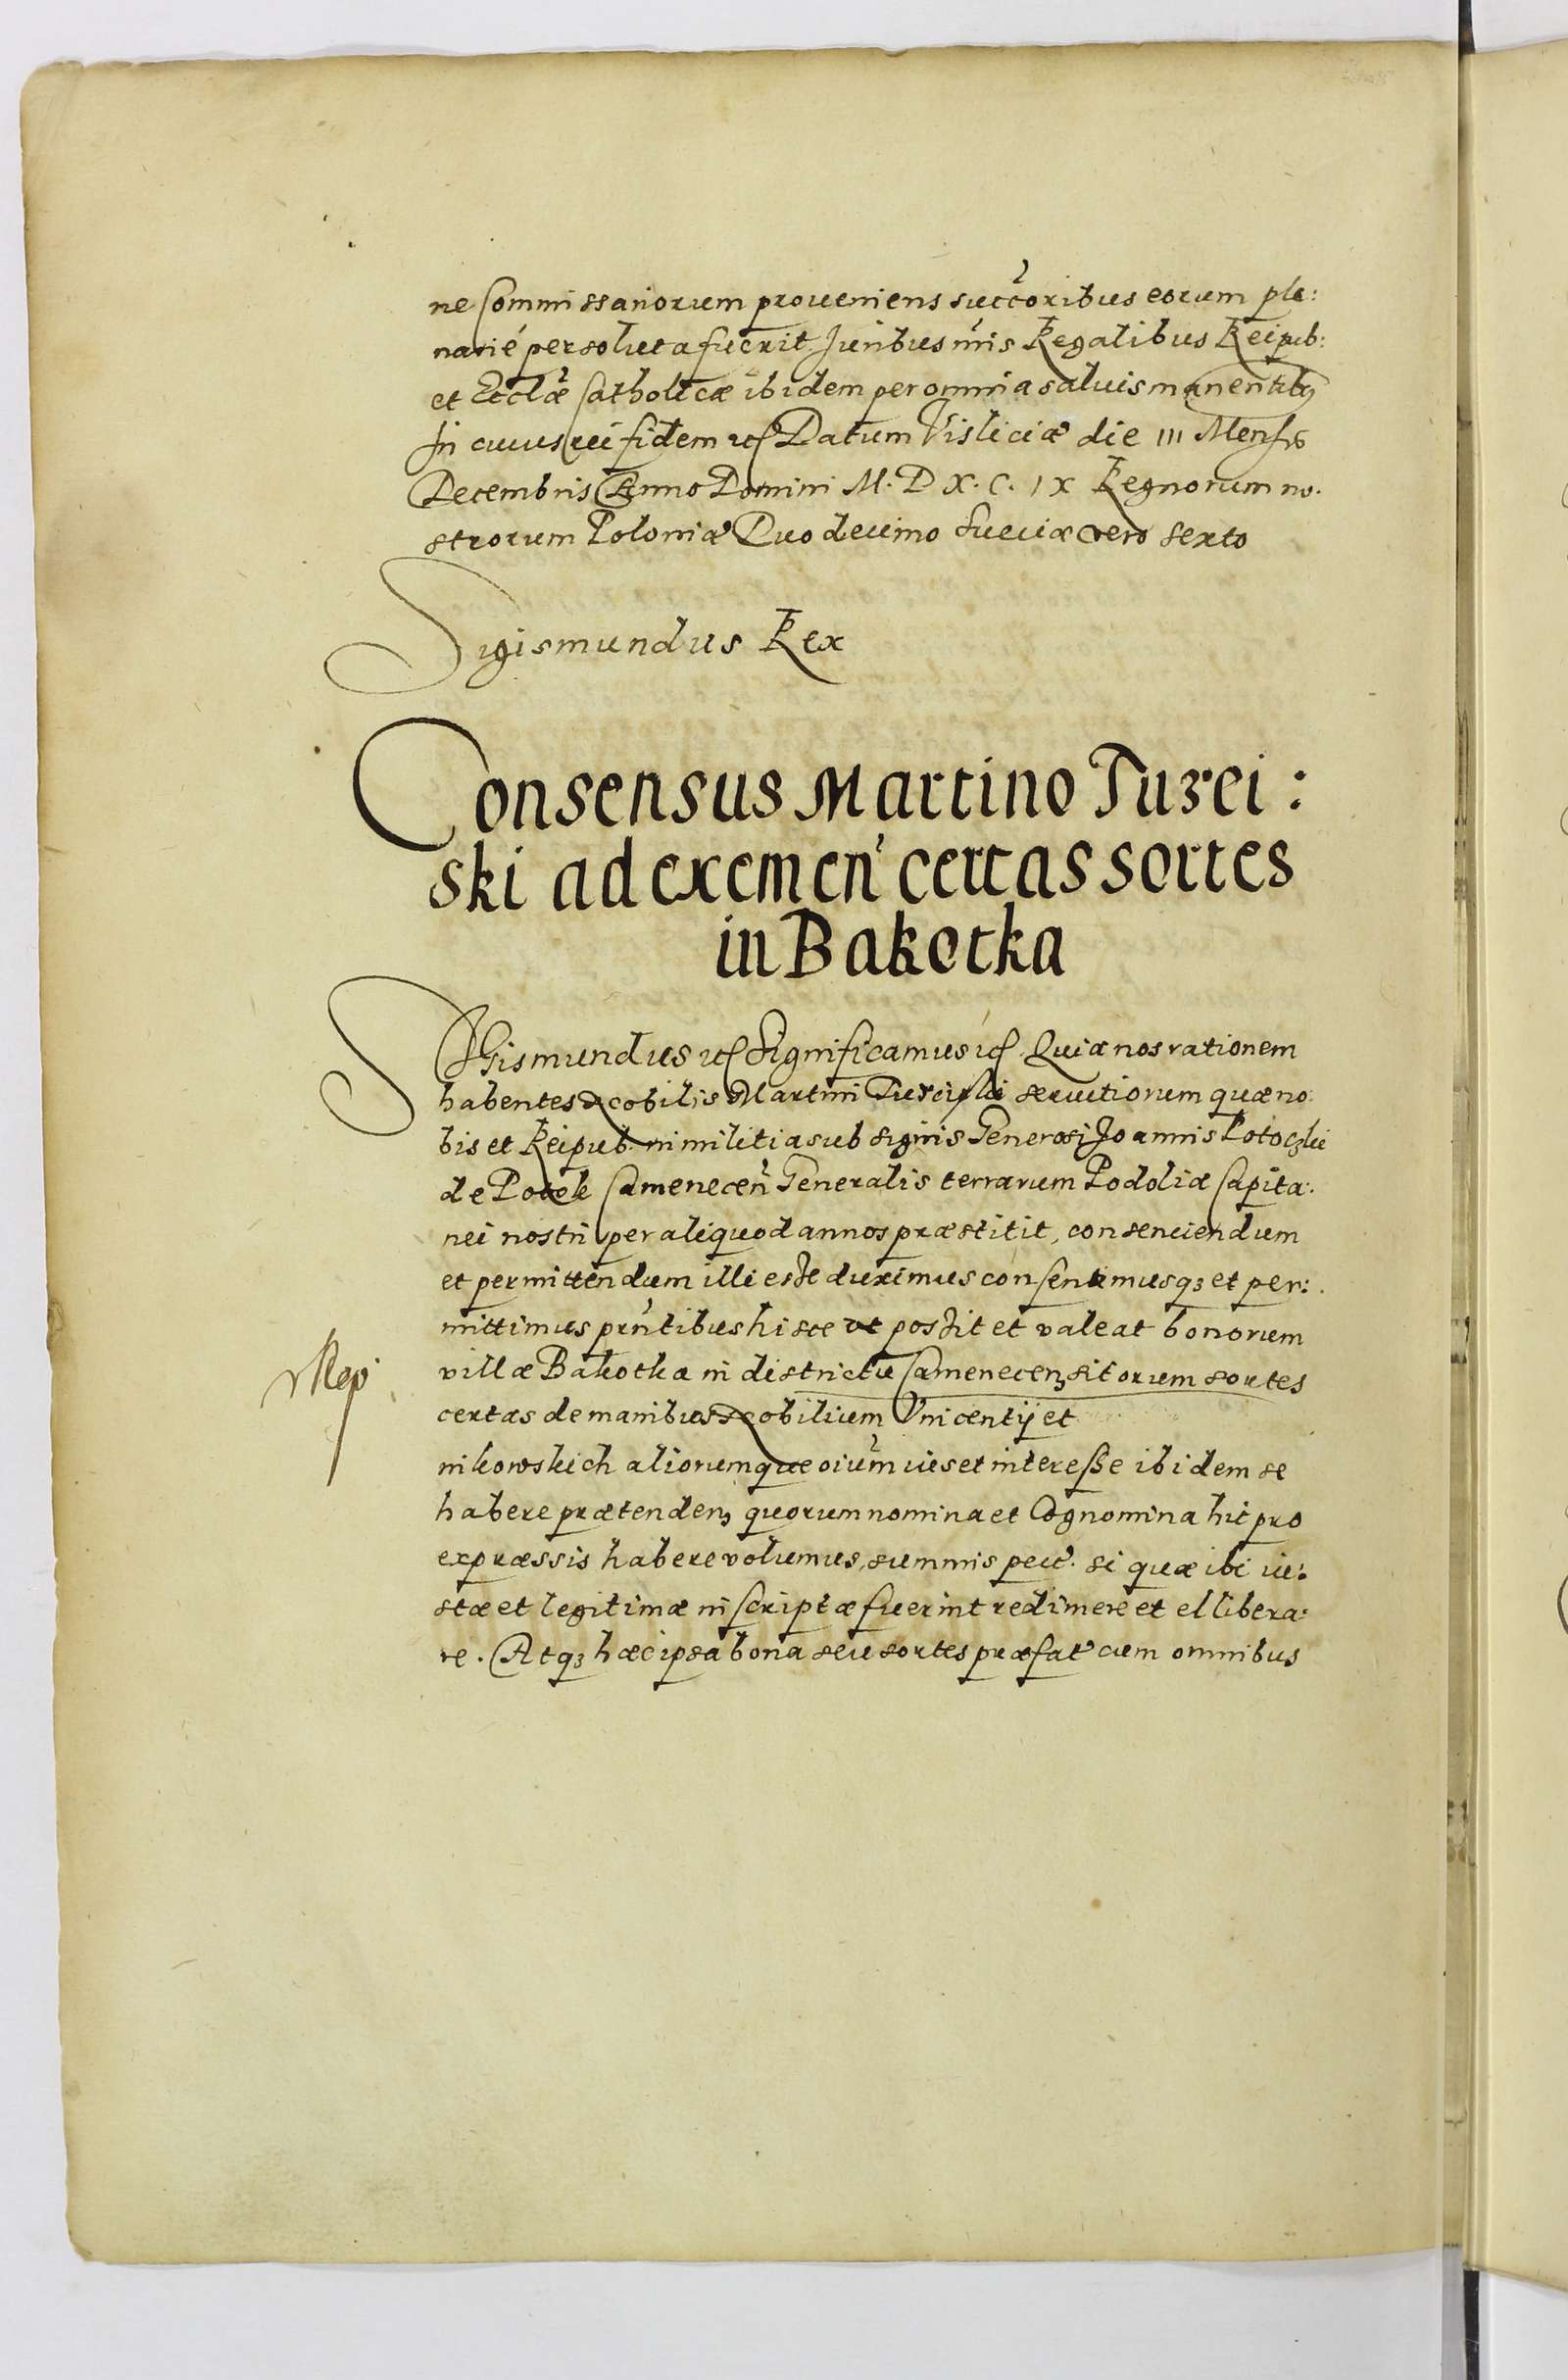 ne Commissariorum proueniens succōribus eorum ple:
nariè persoluta fuerit Juribus n̄ris Regalibus Reipub:
et Eccl̄æ Catholicæ ibidem per omnia saluis manentibꝫ
In cuius rei fidem etc Datum Visliciæ die III Mensis
Decembris Anno Domini M. D X. C. IX Regnorum no.
strorum Poloniæ Duodecimo Sueciæ vero sexto
Sigismundus Rex
Consensus Martino Turei:
ski ad exemen̄ certas sortes
in Bakotka
SIGismundus etc Significamus etc Quia nos rationem
habentes Nobilis Martini seruitiorum quæ no:
bis et Reipub. in militia sub signis Generosi Joannis Potoczki
de Potok Camenecen̄ Generalis terrarum Podoliæ Capita:
nei nostri per aliquod annos præstitit, consenciendum
et permittendum illi esse duximus consentimusqꝫ et per:
mittimus prn̄tibus hisce vt possit et valeat bonorum
villæ Bakotka in districtu Camenecenꝫ sitorum sortes
certas de manibus Nobilium Vincentij et
nikowskich aliorumque oiūm ius et interesse ibidem se
habere prætendenꝫ quorum nomina et Cognomina hic pro
expræssis habere volumus, summis pecc̄. si quæ ibi iu:
stæ et legitimæ inscriptæ fuerint redimere et ellibera:
re. Atqꝫ hæc ipsa bona seu sortes præfat̄ cum omnibus